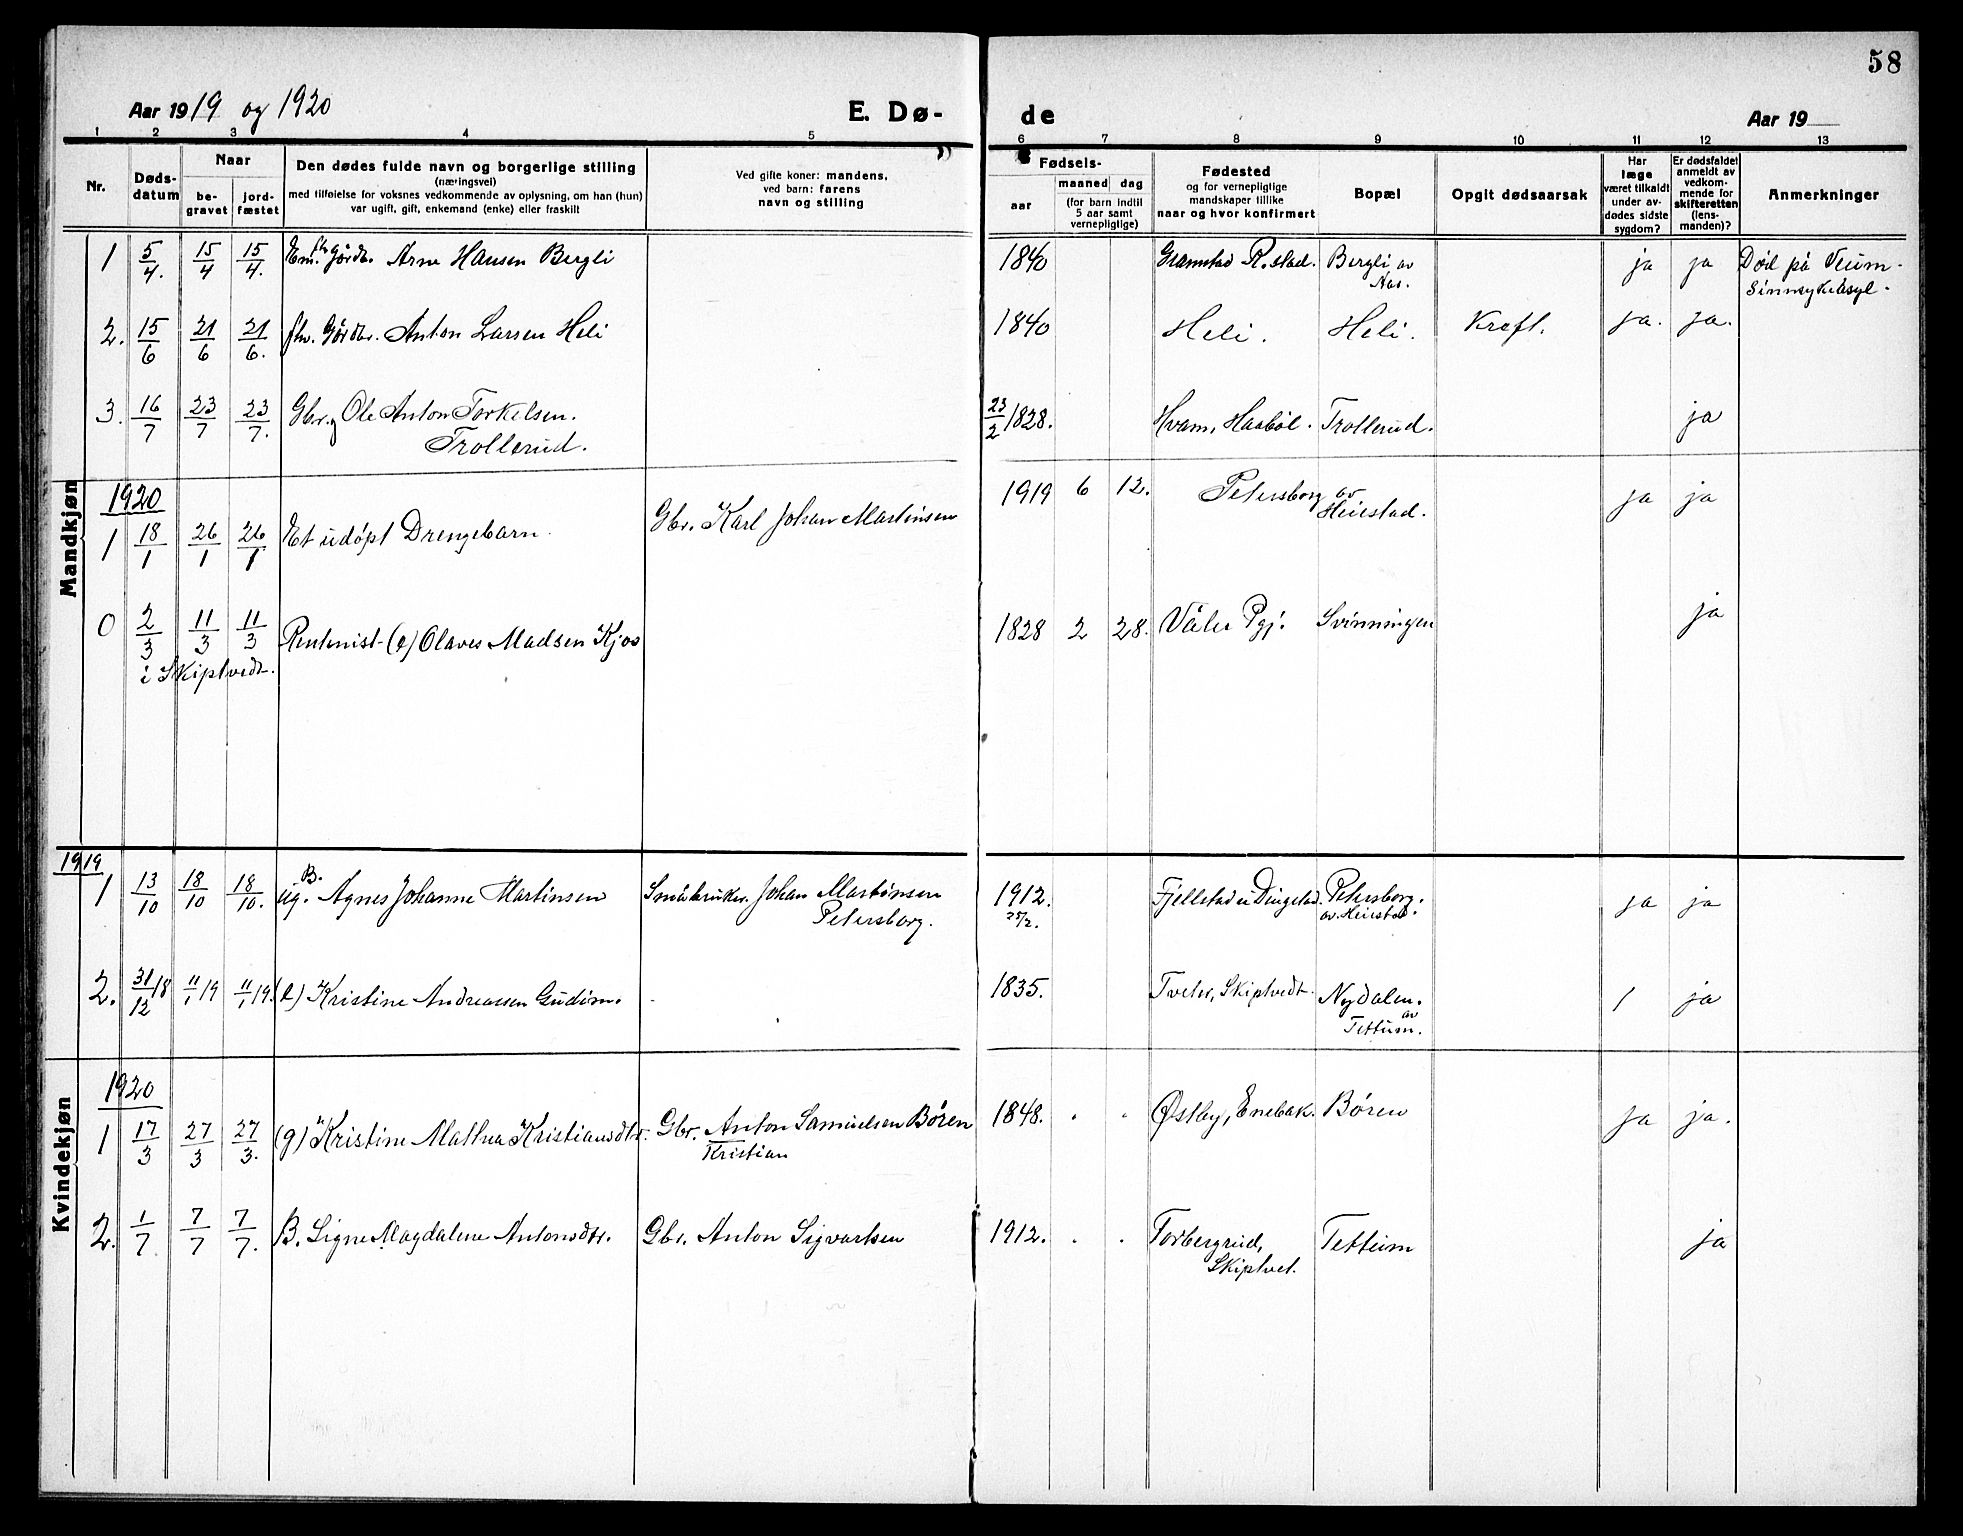 58
Aar 1919 og 1920
E. Dø-
de
Aar 19
1 2 3 4 5 6 7 8 9 10 11 12 13
Nr.
Døds-
datum
Naar
be-
gravet
jord-
fæstet
Den dødes fulde navn og borgerlige stilling
(næringsvei)
med tilføielse for voksnes vedkommende av oplysning, om han (hun)
var ugift, gift, enkemand (enke) eller fraskilt
Ved gifte koner: mandens,
ved barn: farens
navn og stilling
Fødsels-
aar
maaned dag
(for barn indtil
5 aar samt
vernepligtige)
Fødested
og for vernepligtige
mandskaper tillike
naar og hvor konfirmert
Bopæl
Opgit dødsaarsak
Har
læge
været tilkaldt
under av-
dødes sidste
sygdom?
Er dødsfaldet
anmeldt av
vedkom-
mende for
skifteretten
(lens-
manden)?
Anmerkninger
Mandkjøn
1 5/4. 15/4 15/4. Em. fh. Gårdbr. Arne Hansen Bergli 1840 Bergli av ja ja Död på Veum
Aas. Sinnsykeasyl.
2. 15/6 21/6 21/6. fhv. Gårdbr. Anton Larsen Heli 1840 Heli. Heli. Kreft. ja. ja.
3. 16/7 23/7 23/7. Gbr. Ole Anton Torkelsen. 23/2 1828. Hvam, Haabøl. Trollerud. ja
Trollerud.
1920
1 18/1 26/1 26/1 Et udöpt Drengebarn. Gbr. Karl Johan Martinsen 1919 6 12. Petersborg av ja ja
Heiestad.
0 2/3 11/3 11/3 Rentenist (e) Olaves Madsen Kjos 1828 2 28. Våler Pgj. Svinningen ja
i Skiptvedt.
Kvindekjøn
1919
1 13/10 18/10 18/10. B. ug. Agnes Johanne Martinsen Småbruker. Johan Martinsen 1912. Fjellstad i Dingstad. Petersborg. ja ja
Petersborg. 25/2. av Heiestad.
2. 31/12 18 11/1 19 11/1 19. (e) Kristine Andreassen Gudim. 1835. Tveter, Skiptvedt. Nydalen. 1 ja
av
Tettum.
1920
1 17/3 27/3 27/3. (g) Kristine Mathea Kristiansdtr. Gbr. Anton Samuelsen Bören 1848. Østby, Enebak. Bören ja ja.
Kristian
2. 1/7 7/7 7/7. B. Signe Magdalene Antonsdtr. Gbr. Anton Sigvartsen 1912. Torbergrud, Tettum ja
Skiptvet.